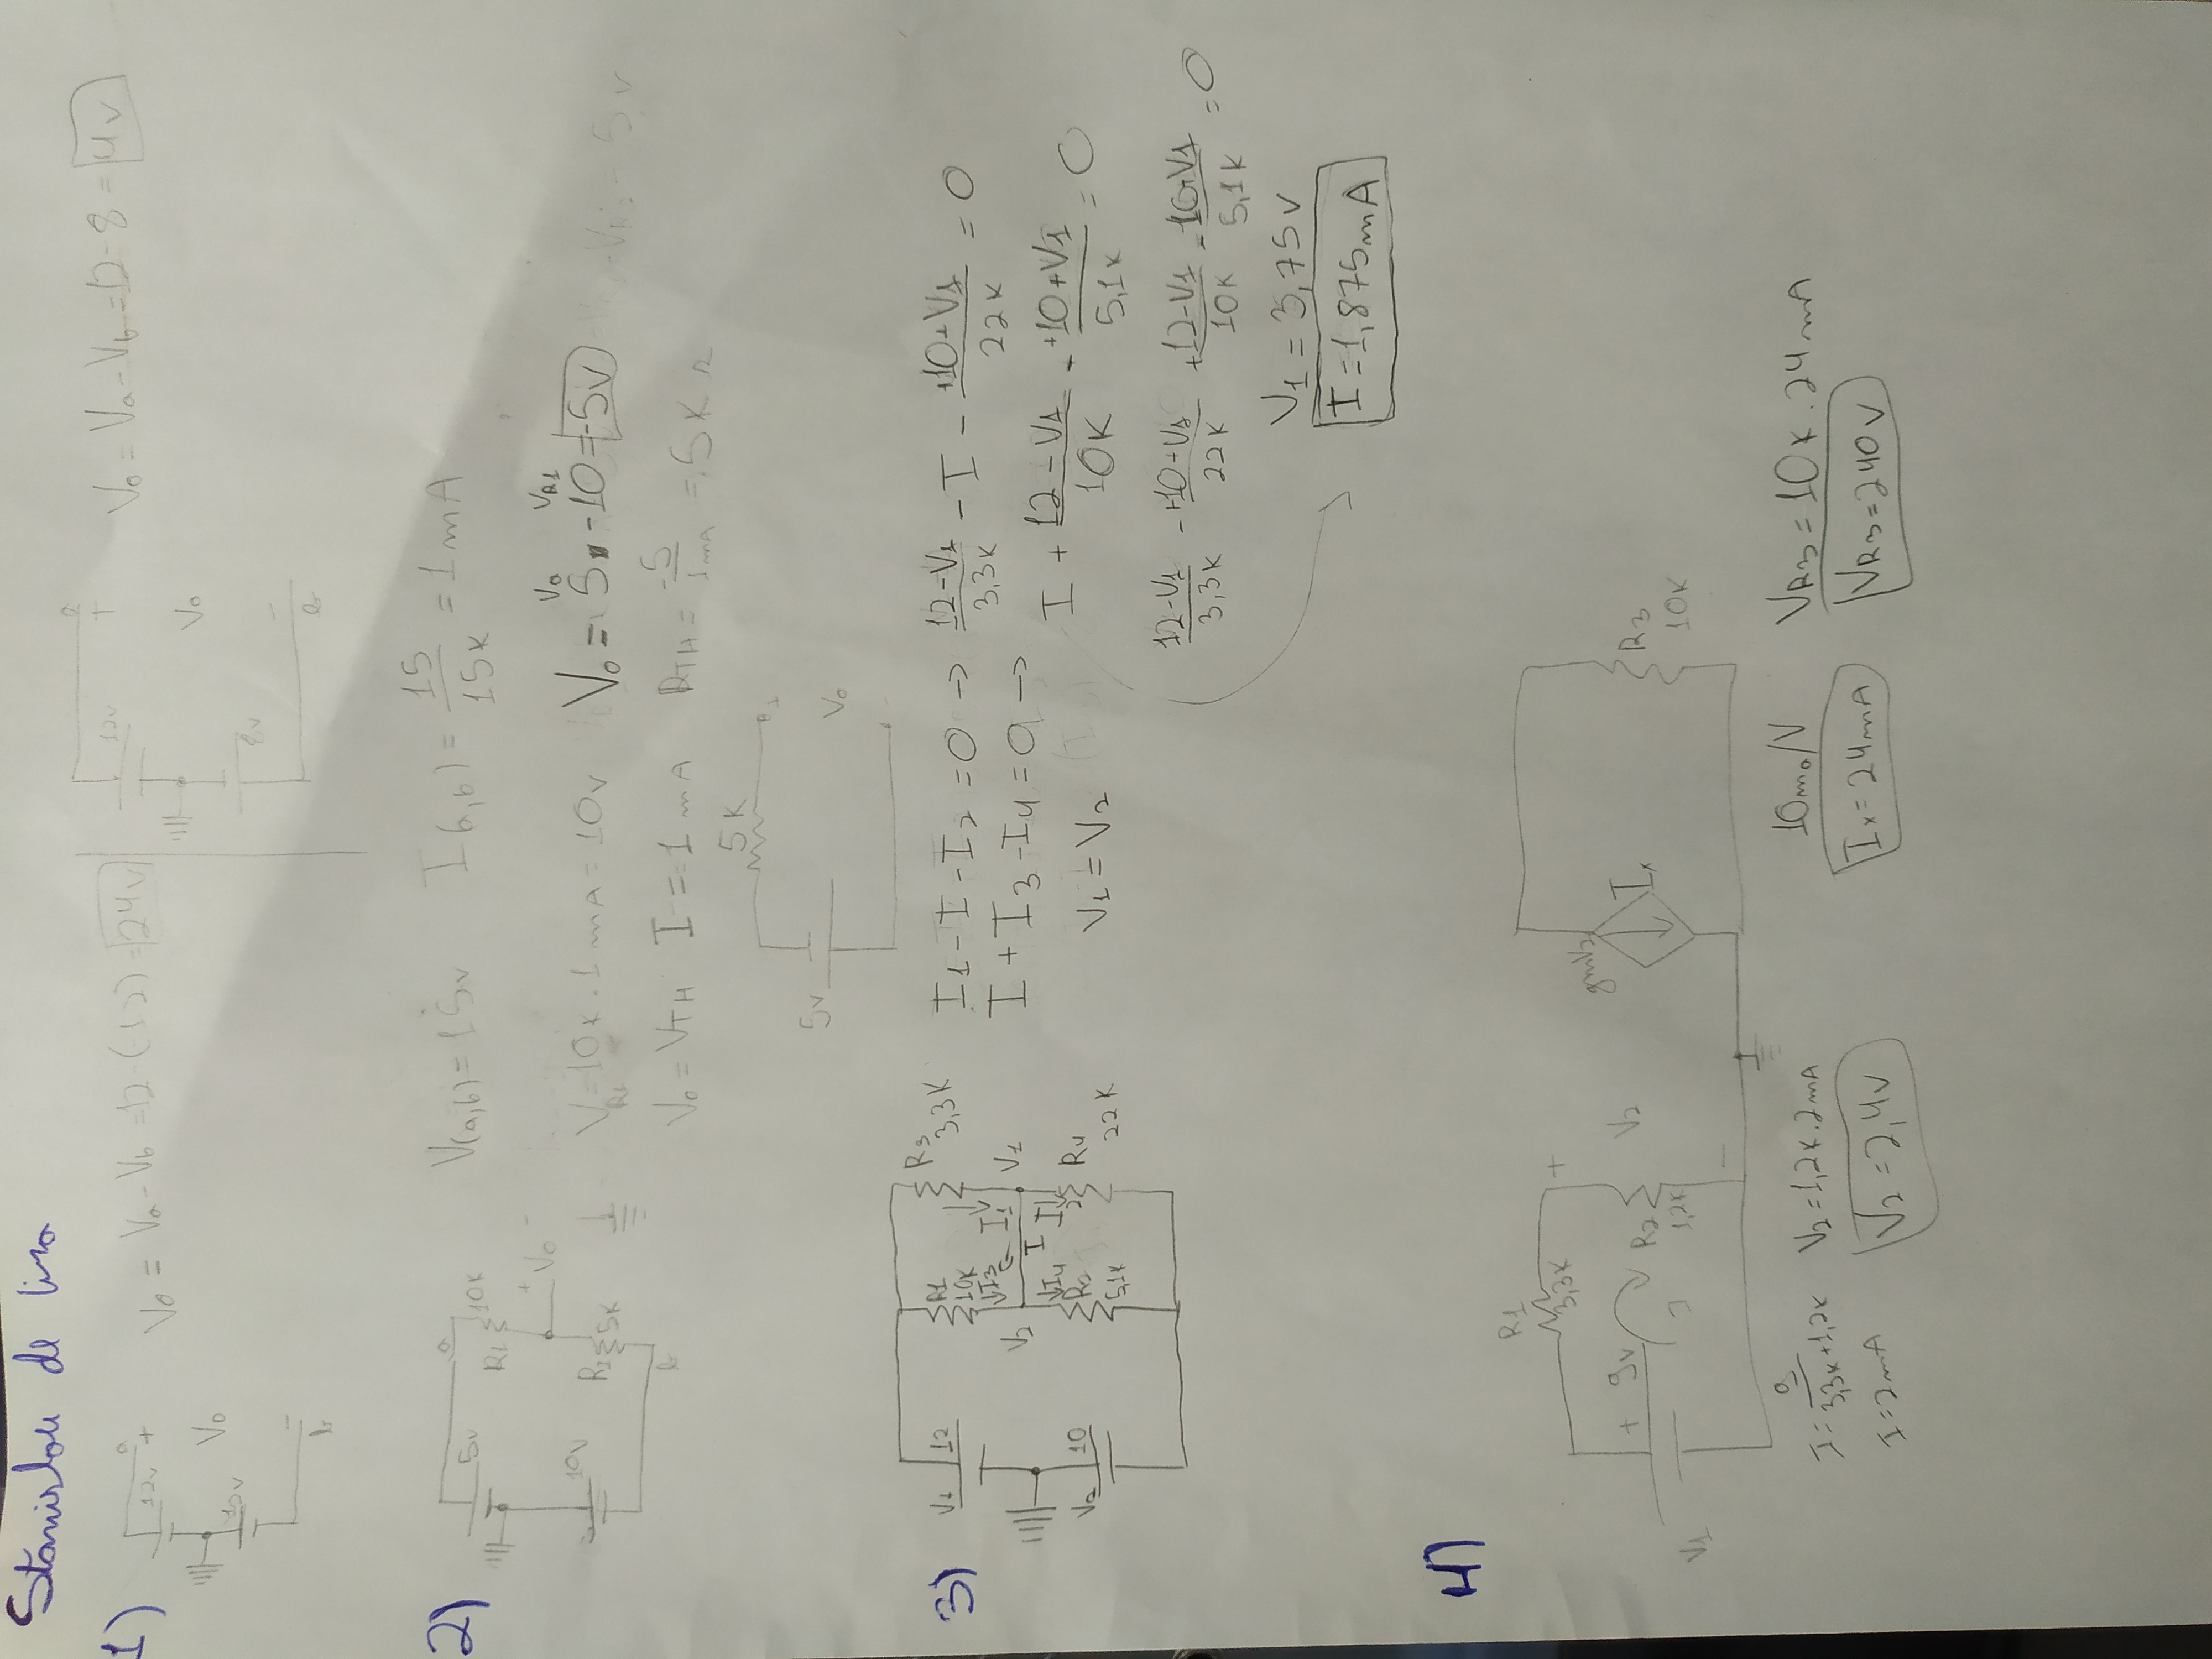 Stanislau de Lima
1)
12v a +
V₀
12v
- b
V₀ = Va - Vb = 12 - (-12) = 24v
a
12v +
V₀
8v
- b
V₀ = Va - Vb = 12 - 8 = 4v
2)
5v a
R1 10K
+ V₀ -
10v
R2 5K
b
V(a,b) = 15v I(a,b) = 15/15K = 1mA
V_R1 = 10K . 1mA = 10v
Va V_R1
V₀ = 5 - 10 = -5v
V₀ = V_TH I = -1mA R_TH = -5/1mA = 5K Ω
5K
5v
V₀
3)
V1 12
R1 10K
R3 3,3K
I3 I1
V2 I V1
V2 10
I4 I2
R2 5,1K
R4 22K
I1 - I - I2 = 0 → (12-V1)/3,3K - I - (+10+V1)/22K = 0
I + I3 - I4 = 0 →
I + (12-V1)/10K - (+10+V1)/5,1K = 0
V1 = V2
(12-V1)/3,3K - (+10+V1)/22K + (12-V1)/10K - (10+V1)/5,1K = 0
V1 = 3,75v
I = 1,875mA
4)
R1
3,3K +
+ 9v
V1
R2 1,2K
V2
-
gmV2
Ix
R3
10K
I = 9/(3,3K+1,2K)
I = 2mA
V2 = 1,2K . 2mA
V2 = 2,4v
10ma/V
Ix = 24mA
VR3 = 10K . 24mA
VR3 = 240v